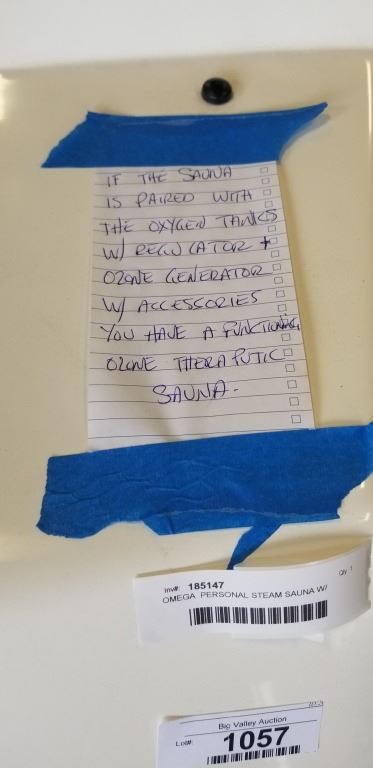 IF THE SAUNA
IS PAIRED WITH
THE OXYGEN TANKS
W/ REGULATOR +
OZONE GENERATOR
W/ ACCESSORIES
YOU HAVE A FUNCTIONING
OZONE THERAPUTIC
SAUNA.
Inv#: 185147
QTY 1
OMEGA PERSONAL STEAM SAUNA W/
Big Valley Auction
Lot#: 1057